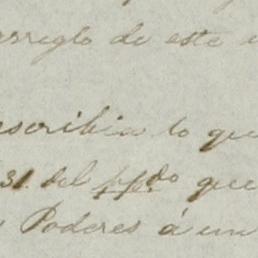 arreglo de este
scribia lo que
31. del ppdo que
Poderes á un